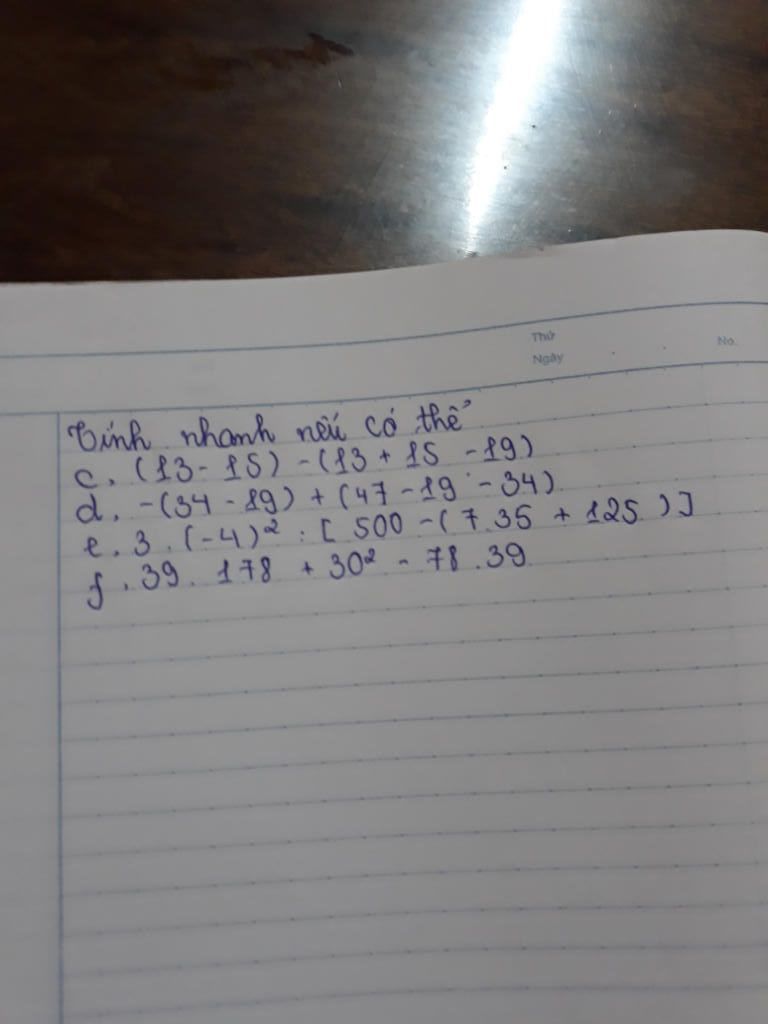 Thứ
Ngày
No.
Tính nhanh nếu có thể
c. (13 - 15) - (13 + 15 - 19)
d. -(34 - 19) + (47 - 19 - 34)
e. 3 . (-4)² : [ 500 - (7.35 + 125 ) ]
f. 39. 178 + 30² - 78 . 39